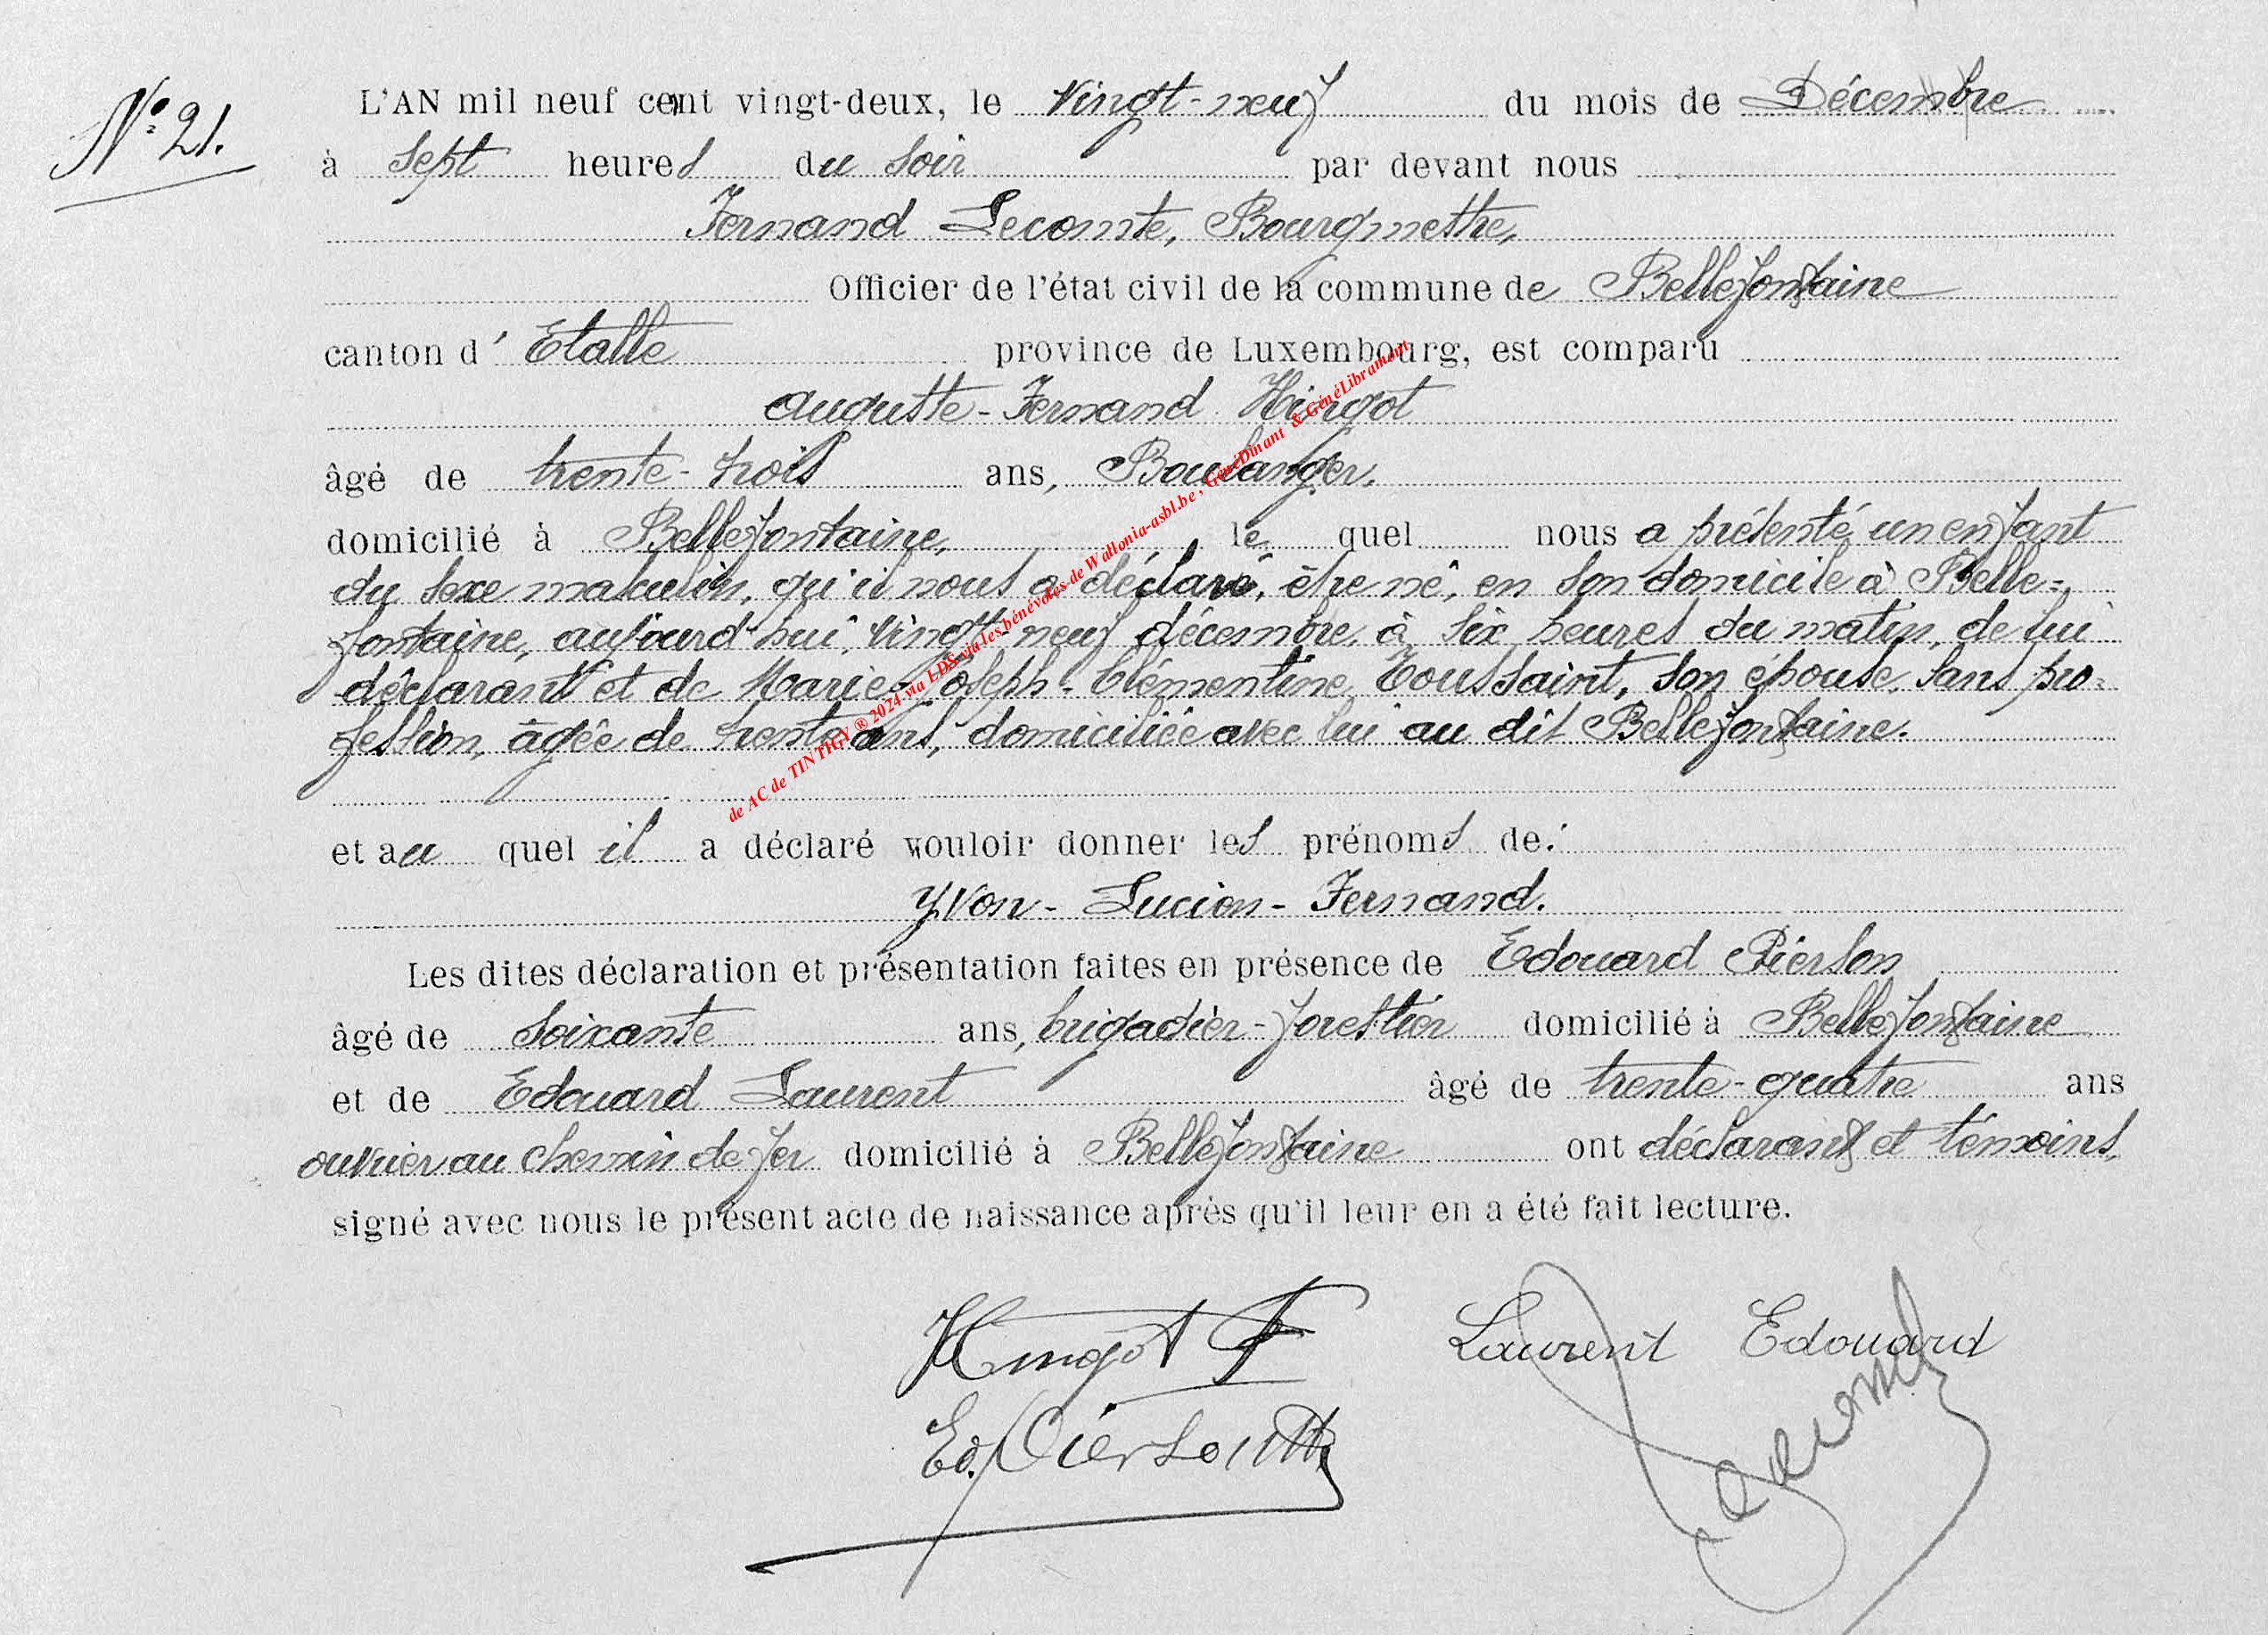 N° 21.
L'AN mil neuf cent vingt-deux, le Vingt-neuf du mois de Décembre
à sept heures du soir par devant nous
Fernand Lecomte, Bourgmestre,
Officier de l'état civil de la commune de Bellefontaine
canton d' Etalle province de Luxembourg, est comparu
Auguste-Fernand Hingot
âgé de trente-trois ans, Boulanger,
domicilié à Bellefontaine, le quel nous a présenté un enfant
du sexe masculin, qu'il nous a déclaré, être né, en son domicile à Belle=
fontaine, aujourd'hui, vingt-neuf décembre, à six heures du matin, de lui
déclarant et de Marie-Joseph-Clémentine Toussaint, son épouse, sans pro=
fession, âgée de trente ans, domiciliée avec lui au dit Bellefontaine.
et au quel il a déclaré vouloir donner les prénoms de:
Yvon-Lucien-Fernand.
Les dites déclaration et présentation faites en présence de Edouard Piérson
âgé de soixante ans, brigadier-forestier domicilié à Bellefontaine
et de Edouard Laurent âgé de trente-quatre ans
ouvrier au chemin de fer domicilié à Bellefontaine ont déclarant et témoins,
signé avec nous le présent acte de naissance après qu'il leur en a été fait lecture.
Hingot F Laurent Edouard
Ed. Pierson
de AC de TINTIGY ® 2024 via LDS via les bénévoles de Wallonia-asbl.be , GénéDinant & GénéLibramont